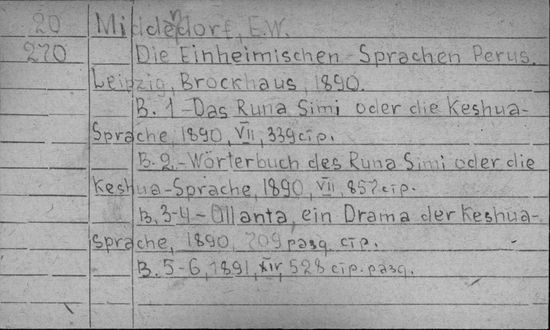 20 Middendorf, E.W.
270 Die Einheimischen Sprachen Perus.
Leipzig, Brockhaus, 1890.
B. 1-Das Runa Simi oder die Keshua-
Sprache, 1890, VII, 339 стр.
B. 2.-Wörterbuch des Runa Simi oder die
Keshua-Sprache, 1890, VII, 857 стр.
B. 3-4-Ollanta, ein Drama der Keshua-
sprache, 1890, 709 разд. стр.
B. 5-6, 1891, XIV, 528 стр. разд.